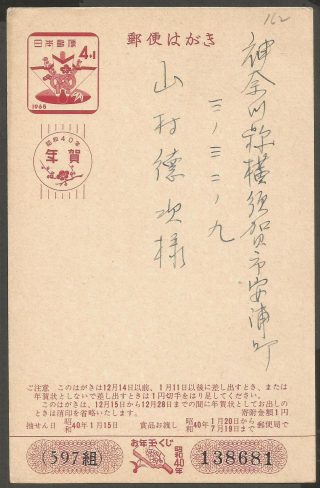 162
日本郵便
4+1
1965
郵便はがき
昭和40年
年賀
神奈川県横須賀市安浦町
三ノ三二ノ九
山村徳次様
ご注意 このはがきは12月14日以前、1月11日以後に差し出すとき、または
年賀状としないで差し出すときは1円切手をはり足してください。
このはがきは、12月15日から12月28日までの間に年賀状としてお出しの
ときは消印を省略いたします。
寄附金額1円
抽せん日 昭和40年1月15日 賞品お渡し 昭和40年1月20日から7月19日まで 郵便局で
お年玉くじ
昭和40年
(597組)
138681